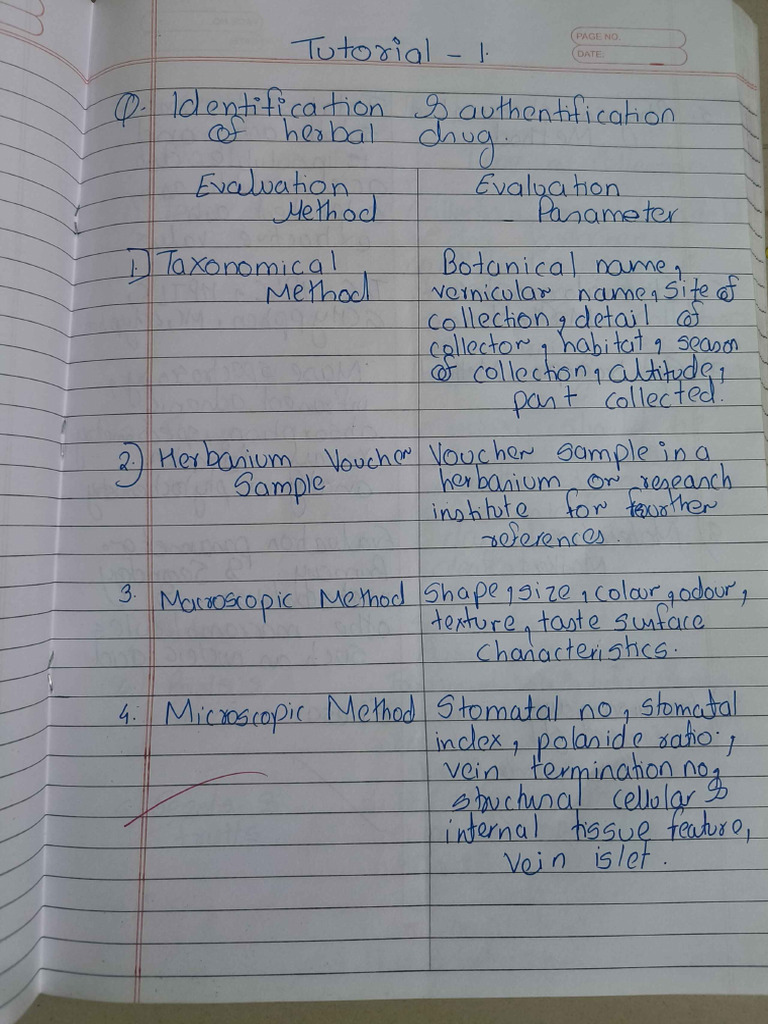 PAGE NO.
DATE:
Tutorial - 1.
Q. Identification & authentification
of herbal drug.
Evaluation
Method
Evaluation
Parameter
1.) Taxonomical
Method
Botanical name,
vernicular name, site of
collection, detail of
collector, habitat, season
of collection, altitude,
part collected.
2.) Herbarium Voucher
Sample
Voucher sample in a
herbarium or research
institute for fourther
references.
3. Macroscopic Method
Shape, size, colour, odour,
texture, taste surface
characteristics.
4. Microscopic Method
Stomatal no, stomatal
index, polaride ratio.,
vein termination no,
structural cellular &
internal tissue feature,
vein islet.